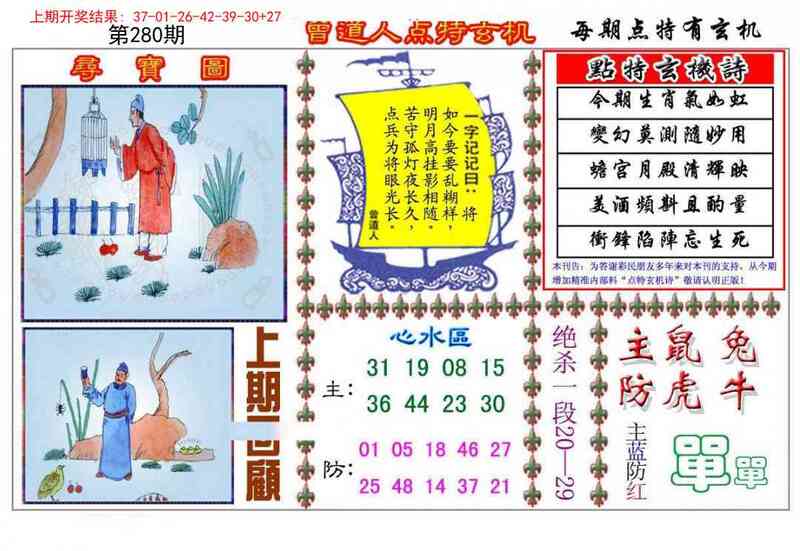 上期开奖结果：37-01-26-42-39-30+27
第280期
曾道人点特玄机
每期点特有玄机
尋寶圖
一字记记曰：将
如今要要乱糊样，
明月高挂影相随。
苦守孤灯夜长久，
点兵为将眼光长。
曾道人
點特玄機詩
今期生肖氣如虹
變幻莫測隨妙用
蟾宫月殿清輝映
美酒頻斟且酌量
衝鋒陷陣忘生死
本刊告：为答谢彩民朋友多年来对本刊的支持。从今期
增加精准内部料“点特玄机诗”敬请认明正版！
上期
回顧
心水區
主：
31 19 08 15
36 44 23 30
防：
01 05 18 46 27
25 48 14 37 21
绝杀一段20—29
主 鼠 兔
防 虎 牛
主蓝防红
單 單